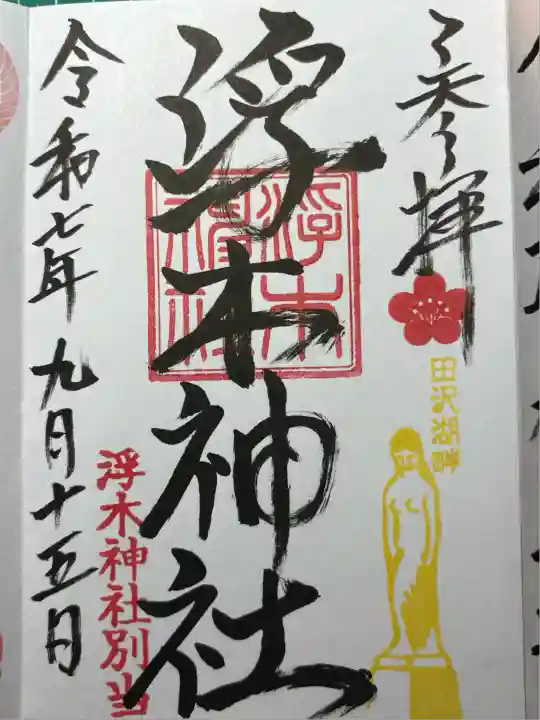 奉拝
田沢湖畔
浮木神社
浮木神社別当
令和七年九月十五日